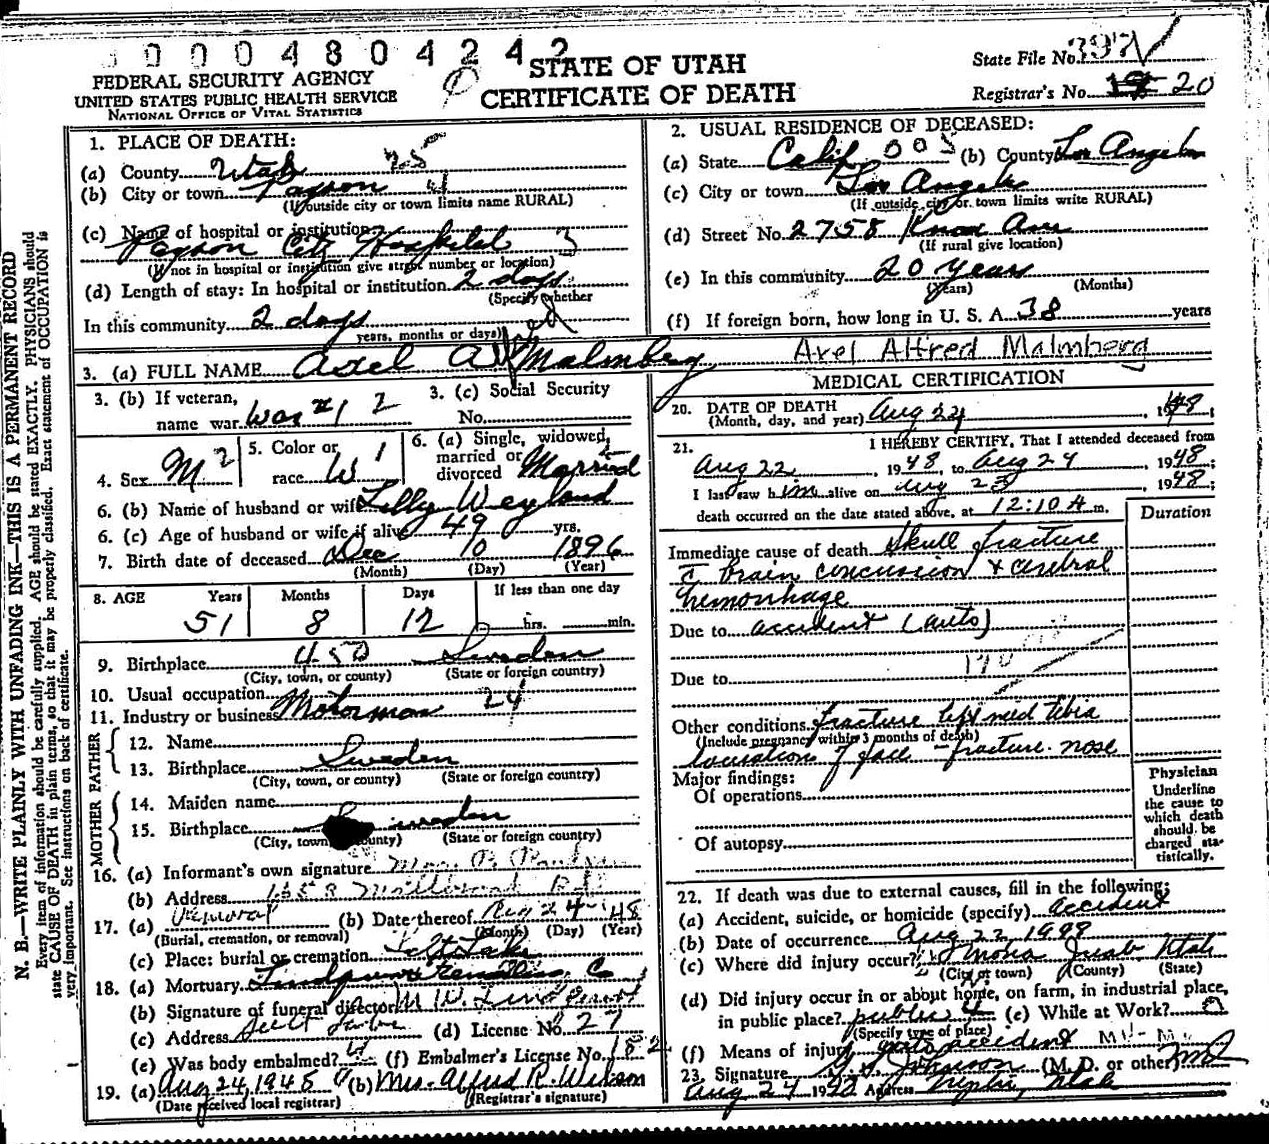 0 0 0 4 8 0 4 2 4 2
FEDERAL SECURITY AGENCY
UNITED STATES PUBLIC HEALTH SERVICE
NATIONAL OFFICE OF VITAL STATISTICS
STATE OF UTAH
CERTIFICATE OF DEATH
State File No. 397
Registrar's No. 20
N. B.—WRITE PLAINLY WITH UNFADING INK—THIS IS A PERMANENT RECORD
Every item of information should be carefully supplied. AGE should be stated EXACTLY. PHYSICIANS should
state CAUSE OF DEATH in plain terms, so that it may be properly classified. Exact statement of OCCUPATION is
very important. See instructions on back of certificate.
1. PLACE OF DEATH:
(a) County Utah 25
(b) City or town Payson
(If outside city or town limits name RURAL)
(c) Name of hospital or institution:
Payson City Hospital 3
(If not in hospital or institution give street number or location)
(d) Length of stay: In hospital or institution 2 days
(Specify whether
In this community 2 days
years, months or days)
2. USUAL RESIDENCE OF DECEASED:
(a) State Calif 005 (b) County Los Angeles
(c) City or town Los Angeles
(If outside city or town limits write RURAL)
(d) Street No. 2758 Knox Ave
(If rural give location)
(e) In this community 20 years
(Years) (Months)
(f) If foreign born, how long in U. S. A. 38 years
3. (a) FULL NAME Axel A Malmberg Axel Alfred Malmberg
3. (b) If veteran,
name war War #1 2
3. (c) Social Security
No.
4. Sex M 2
5. Color or
race W 1
6. (a) Single, widowed,
married or
divorced Married
6. (b) Name of husband or wife Lilly Weyland
6. (c) Age of husband or wife if alive 49 yrs.
7. Birth date of deceased Dec 10 1896
(Month) (Day) (Year)
8. AGE Years Months Days If less than one day
51 8 12 hrs. min.
9. Birthplace 450 Sweden
(City, town, or county) (State or foreign country)
10. Usual occupation 24
11. Industry or business Motorman
FATHER
12. Name
13. Birthplace Sweden
(City, town, or county) (State or foreign country)
MOTHER
14. Maiden name
15. Birthplace Sweden
(City, town county) (State or foreign country)
16. (a) Informant's own signature
(b) Address
17. (a) Removal (b) Date thereof Aug 24 48
(Burial, cremation, or removal) (Month) (Day) (Year)
(c) Place: burial or cremation Salt Lake
18. (a) Mortuary
(b) Signature of funeral director
(c) Address Salt Lake (d) License No. 27
(e) Was body embalmed? (f) Embalmer's License No. 182
19. (a) Aug 24, 1948 (b) Mrs. Alfred R. Wilson
(Date received local registrar) (Registrar's signature)
MEDICAL CERTIFICATION
20. DATE OF DEATH
(Month, day, and year) Aug 24, 1948;
21. I HEREBY CERTIFY, That I attended deceased from
Aug 22, 1948, to Aug 24 1948;
I last saw him alive on Aug 23 1948;
death occurred on the date stated above, at 12:10 A m.
Duration
Immediate cause of death Skull fracture
c̄ brain concussion & cerebral
hemorrhage
Due to accident (auto)
170
Due to
Other conditions fracture left mid tibia
(Include pregnancy within 3 months of death)
of face - fracture nose
Major findings:
Of operations
Of autopsy
Physician
Underline
the cause to
which death
should be
charged sta-
tistically.
22. If death was due to external causes, fill in the following:
(a) Accident, suicide, or homicide (specify) accident
(b) Date of occurrence Aug 22 1948
(c) Where did injury occur? Mona Juab Utah
(City or town) (County) (State)
(d) Did injury occur in or about home, on farm, in industrial place,
in public place? public (e) While at Work?
(Specify type of place)
(f) Means of injury auto accident
23. Signature Johnson (M. D. or other) MD
Aug 24 19 Address Nephi, Utah